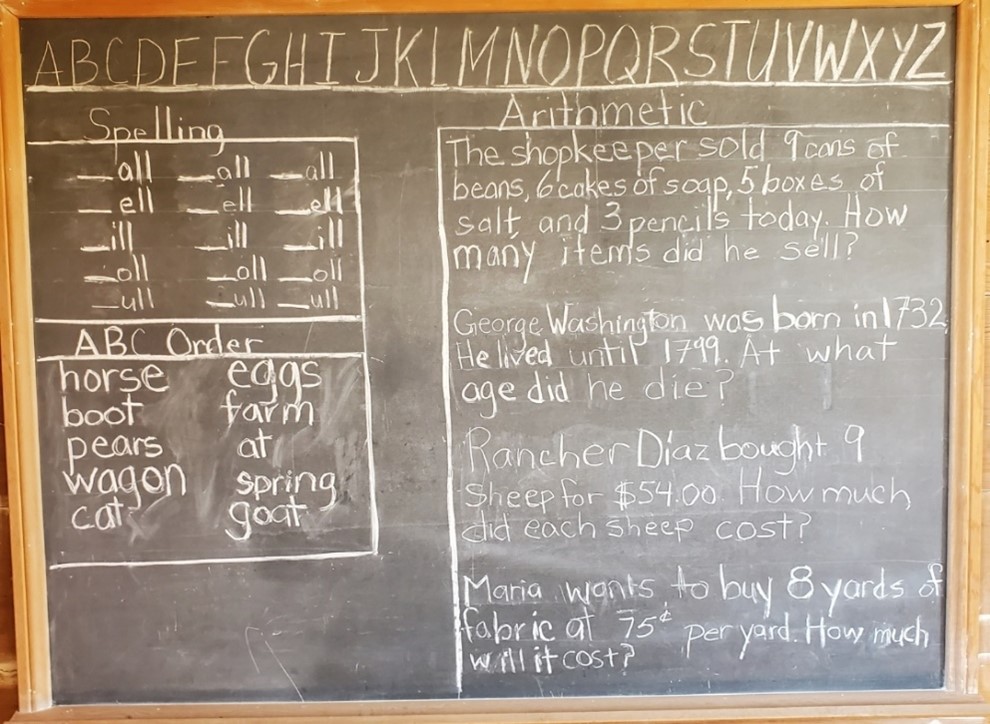 ABCDEFGHIJKLMNOPQRSTUVWXYZ
Spelling
_all _all _all
_ell _ell _ell
_ill _ill _ill
_oll _oll _oll
_ull _ull _ull
ABC Order
horse eggs
boot farm
pears at
wagon spring
cat goat
Arithmetic
The shopkeeper sold 9 cans of
beans, 6 cakes of soap, 5 boxes of
salt, and 3 pencils today. How
many items did he sell?
George Washington was born in 1732.
He lived until 1799. At what
age did he die?
Rancher Díaz bought 9
sheep for $54.00. How much
did each sheep cost?
Maria wants to buy 8 yards of
fabric at 75¢ per yard. How much
will it cost?